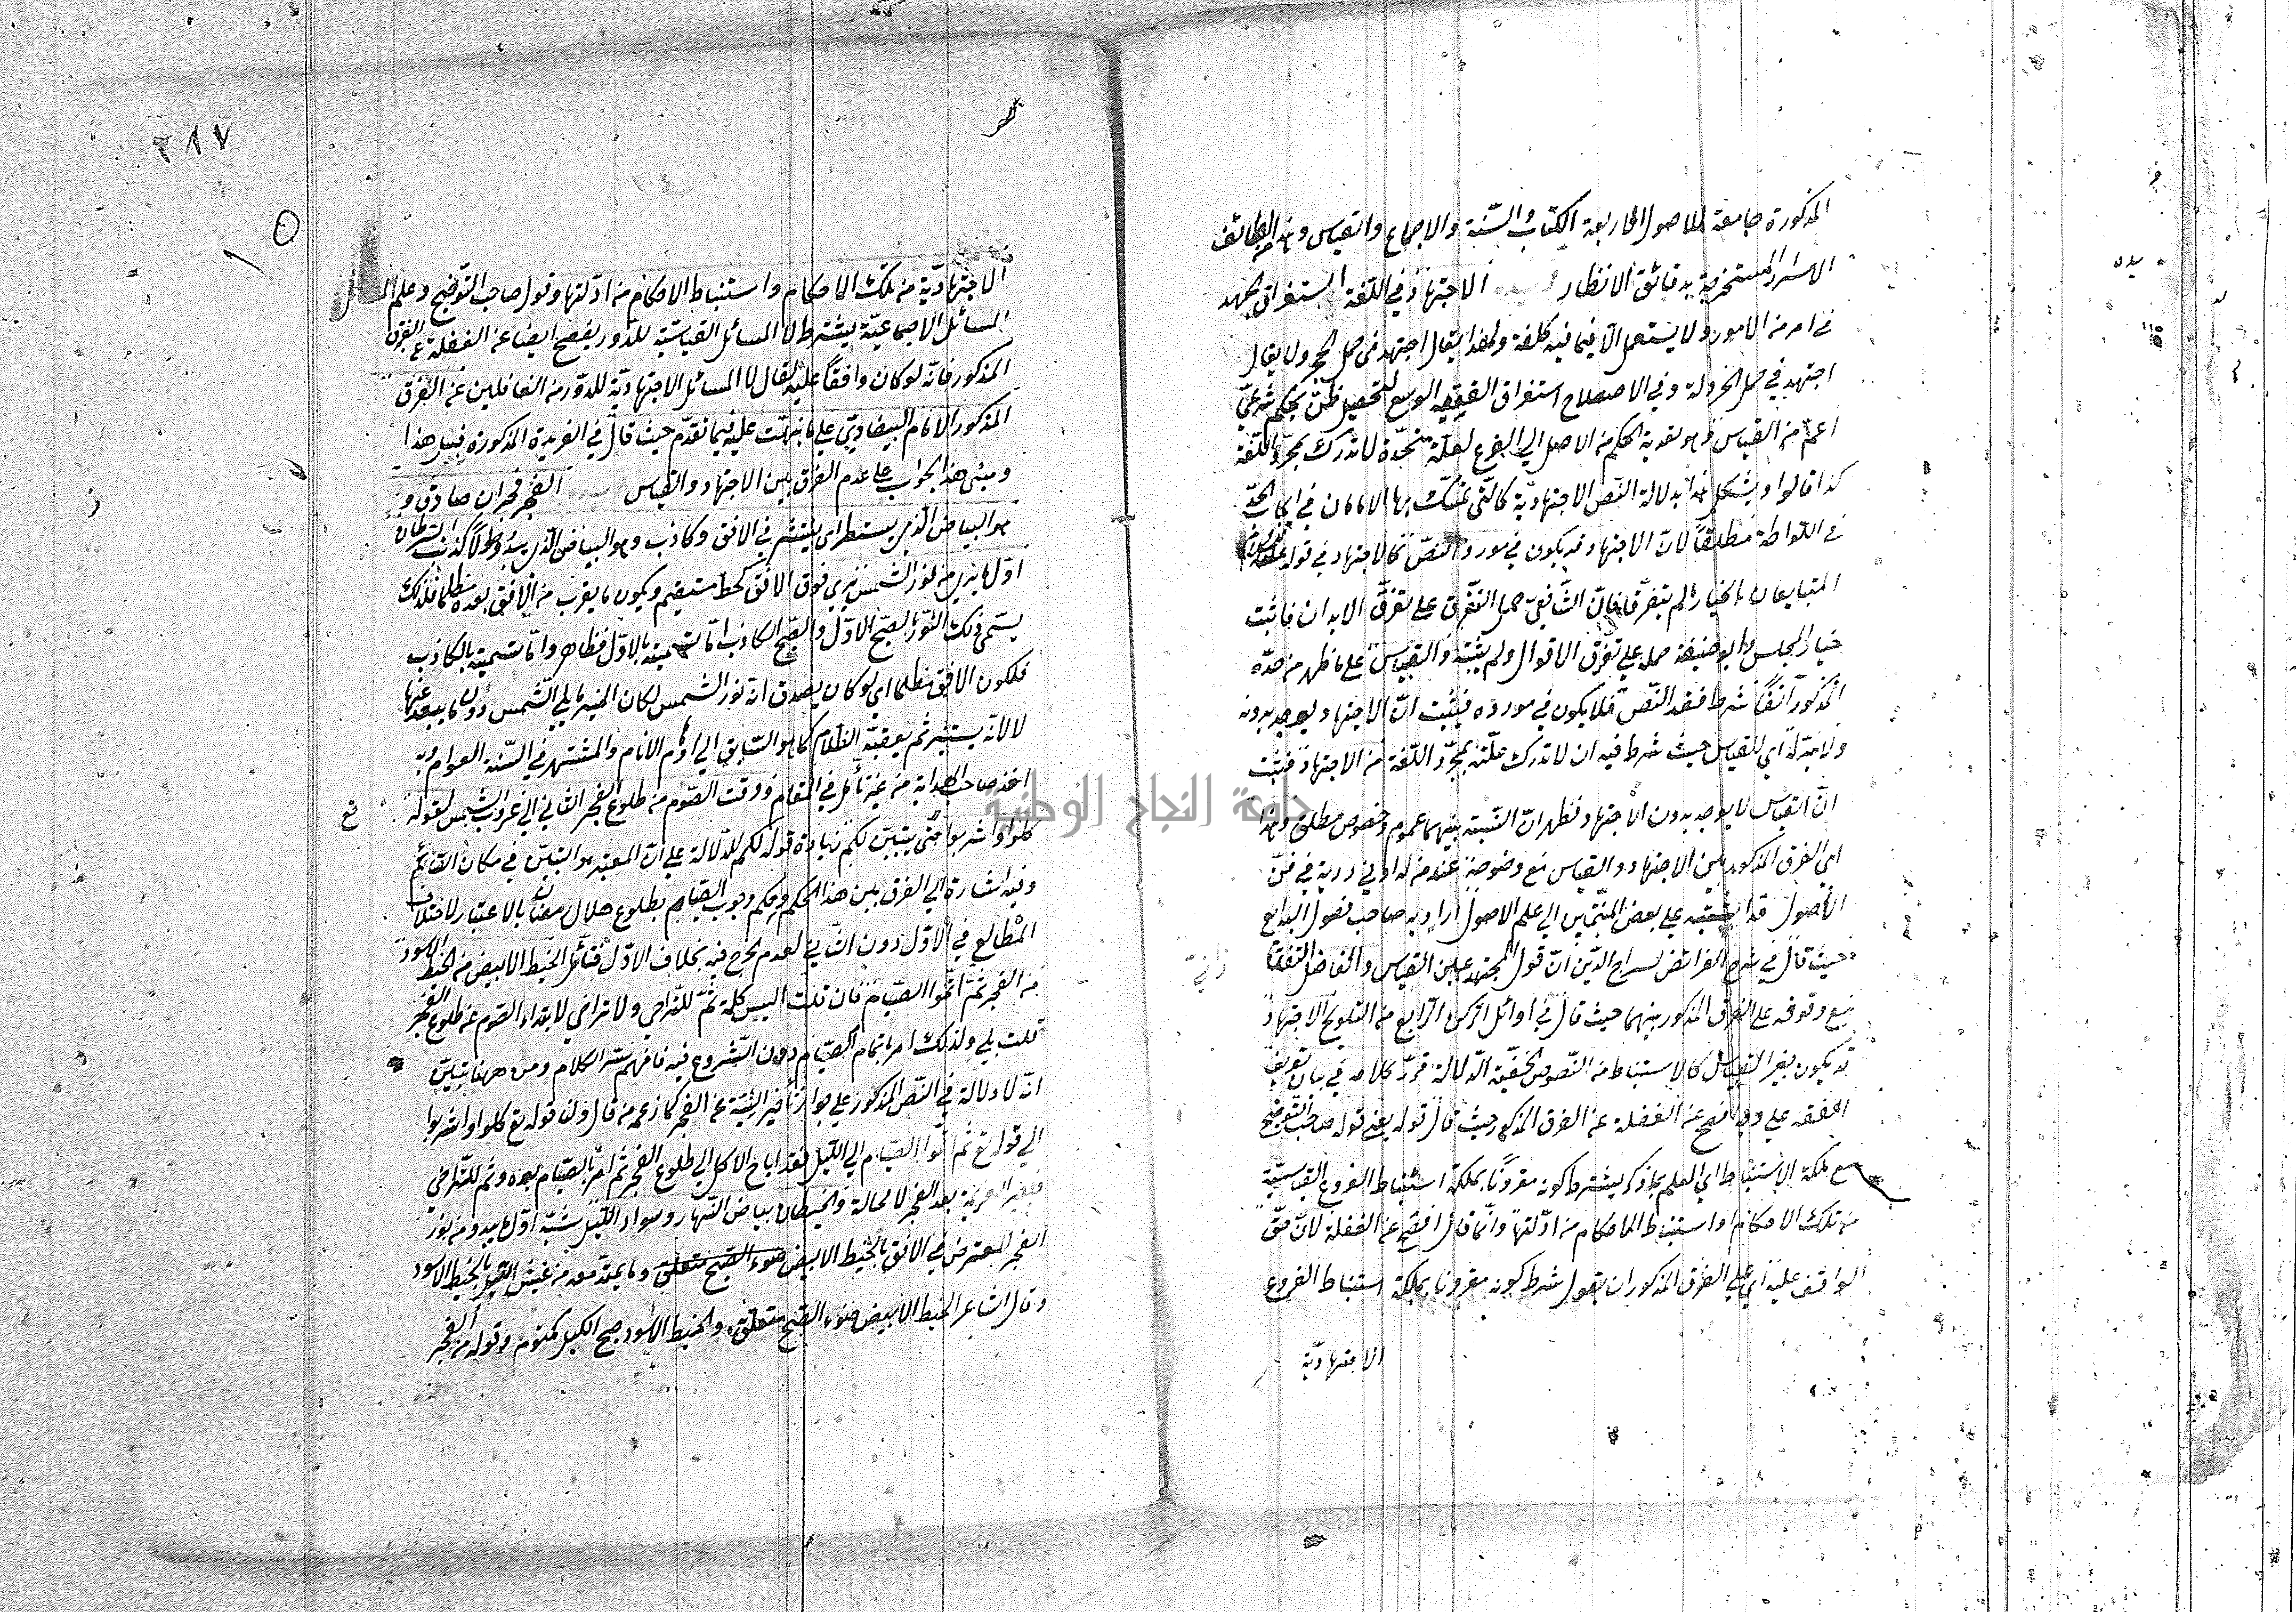 المذكورة جامعة للاصول الاربعة الكتاب والسنة والاجماع والقياس ومن اللطائف
الاسرار المستخرجة بدقائق الانظار الاجتهاد في اللغة استغراق الجهد
في امر من الامور ولا يستعمل الا فيما فيه كلفة ولهذا يقال اجتهد في حمل الحجر ولا يقال
اجتهد في حمل الخردلة وفي الاصطلاح استفراق الفقيه الوسع لتحصيل ظن بحكم شرعي
اعم من القياس وهو تعدية الحكم من الاصل الي الفرع لعلة متحدة لا تدرك بمجرد اللغة
كذا قالوا ويشكل هذا بدلالة النص الاجتهادية كالتي تمسك بها الامامان في ايجاب الحد
في اللواطة مطلقا لان الاجتهاد قد يكون في مورد النص كالاجتهاد في قوله
المتبايعان بالخيار ما لم يتفرقا فان الشافعي حمل التفرق علي تفرق الابدان فاثبت
خيار المجلس وابو حنيفة حمله علي تفرق الاقوال ولم يثبته والقياس علي ما ظهر من حده
المذكور آنفا شرط فقد النص فلا يكون في مورده فيثبت ان الاجتهاد يوجد بدونه
ولا بد له اي للقياس حيث شرط فيه ان لا تدرك علته بمجرد اللغة من الاجتهاد فثبت
ان القياس لا يوجد بدون الاجتهاد فظهر ان النسبة بينهما عموم وخصوص مطلق وهذا
اي الفرق المذكور بين الاجتهاد والقياس مع وضوحه عند من له ادني دربة في فن
الاصول قد اشتبه علي بعض المنتمين الي علم الاصول اراد به صاحب فصول البدايع
حيث قال في شرح الفرائض لسراج الدين ان قول المجتهد عين القياس والفاضل التفتازاني
مع وقوفه علي الفرق المذكور بينهما حيث قال في اوائل الركن الرابع من التلويح الاجتهاد
قد يكون بغير القياس كالاستنباط من النصوص الخفية الدلالة قرر كلامه في بيان تعريف
الفقه علي وجه افصح عن الغفلة عن الفرق المذكور حيث قال قوله يعني قوله صاحب التوضيح
مع ملكة الاستنباط اي العلم بما ذكر يشترط كونه مقرونا بملكة استنباط الفروع القياسية
من تلك الاحكام او استنباط الاحكام من ادلتها وانما قال افصح عن الغفلة لان حق
الواقف عليه اي علي الفرق المذكور ان يقول شرط كونه مقرونا بملكة استنباط الفروع
الاجتهادية
٢٨٧
الاجتهادية من تلك الاحكام واستنباط الاحكام من ادلتها وقول صاحب التوضيح وعلم
المسائل الاجماعية يشترط لا المسائل القياسية للدور يفصح ايضا عن الغفلة عن الفرق
المذكور فانه لو كان واقفا عليه لقال لا المسائل الاجتهادية للدور من الغافلين عن الفرق
المذكور الامام البيضاوي علي ما نبهت عليه فيما تقدم حيث قال في الفريدة المذكورة قبيل هذا
ومبني هذا الجواب علي عدم الفرق بين الاجتهاد والقياس الفجر فجران صادق و
هو البياض الذي يستطير اي ينتشر في الافق وكاذب وهو البياض الذي يبدو طولا كذنب السرطان
اول ما يبدي من نور الشمس يري فوق الافق كخط مستقيم ويكون ما يقرب من الافق بعده مظلما فلذلك
يسمي ذلك النور بالصبح الاول والصبح الكاذب اما تسميته بالاول فظاهر واما تسميته بالكاذب
فلكون الافق مظلما اي لو كان يصدق انه نور الشمس لكان المنير ما يلي الشمس دون ما يبعد عنها
لا لانه يستنير ثم يعقبه الظلام كما هو السابق الي اوهام الانام والمشتهر في السنة العوام وبه
اخذ صاحب الهداية من غير تأمل في المقام ووقت الصوم من طلوع الفجر الثاني الي غروب الشمس لقوله تع
كلوا واشربوا حتي يتبين لكم زيادة قوله لكم للدلالة علي ان المعتبر هو التبين في مكان الصائم
وفيه اشارة الي الفرق بين هذا الحكم وحكم وجوب الصيام بطلوع هلال رمضان بالاعتبار لاختلاف
المطالع في الاول دون الثاني لعدم الحرج فيه بخلاف الاول فتأمل الخيط الابيض من الخيط الاسود
من الفجر ثم اتموا الصيام فان قلت اليس كلمة ثم للتراخي ولا تراخي لابتداء الصوم عن طلوع الفجر
قلت بلي ولذلك امر باتمام الصيام دون الشروع فيه فافهم سر الكلام ومن ههنا تبين
انه لا دلالة في النص المذكور علي جواز تأخير النية عن الفجر كما زعمه من قال ان قوله تع كلوا واشربوا
الي قوله تع ثم اتموا الصيام الي الليل فقد اباح الاكل الي طلوع الفجر ثم امر بالصيام بعده وثم للتراخي
فيصير العزيمة بعد الفجر لا محالة والخيطان بياض النهار وسواد الليل شبه اول ما يبدو من نور
الفجر المعترض في الافق بالخيط الابيض وما يمتد معه من غبش الليل بالخيط الاسود
وقال الشاعر الخيط الابيض ضوء الصبح منفلق والخيط الاسود جنح الليل مكتوم وقوله من الفجر